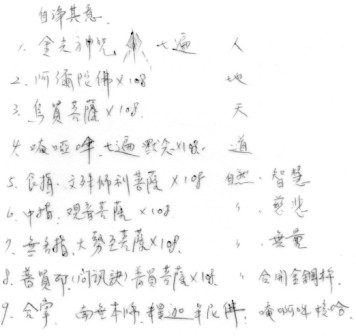 自淨其意.
1. 金光神咒 七遍 人
2. 阿彌陀佛×108 地
3. 烏賢菩薩×108. 天
4. 唵啞吽. 七遍 默念×108. 道
5. 食指. 文殊師利菩薩×108 自然. 智慧
6. 中指. 觀音菩薩×108. 〃. 慈悲
7. 無名指. 大勢至菩薩×108. 〃. 無量
8. 普賢印(問訊訣) 普賢菩薩×108. 〃 合開金剛杵.
9. 合掌. 南無本師釋迦牟尼佛. 唵啊吽